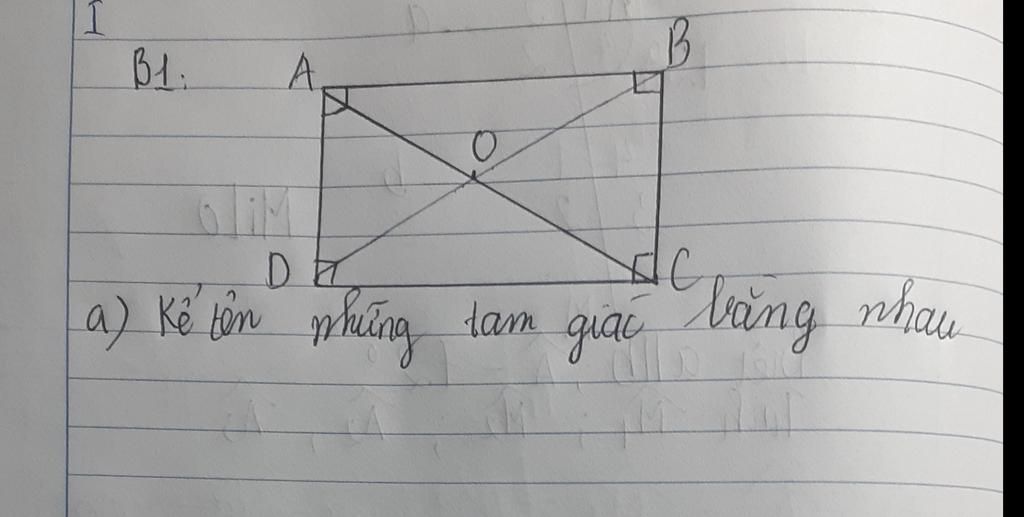 I
B1:
A
B
O
D
C
a) Kể tên những tam giác bằng nhau